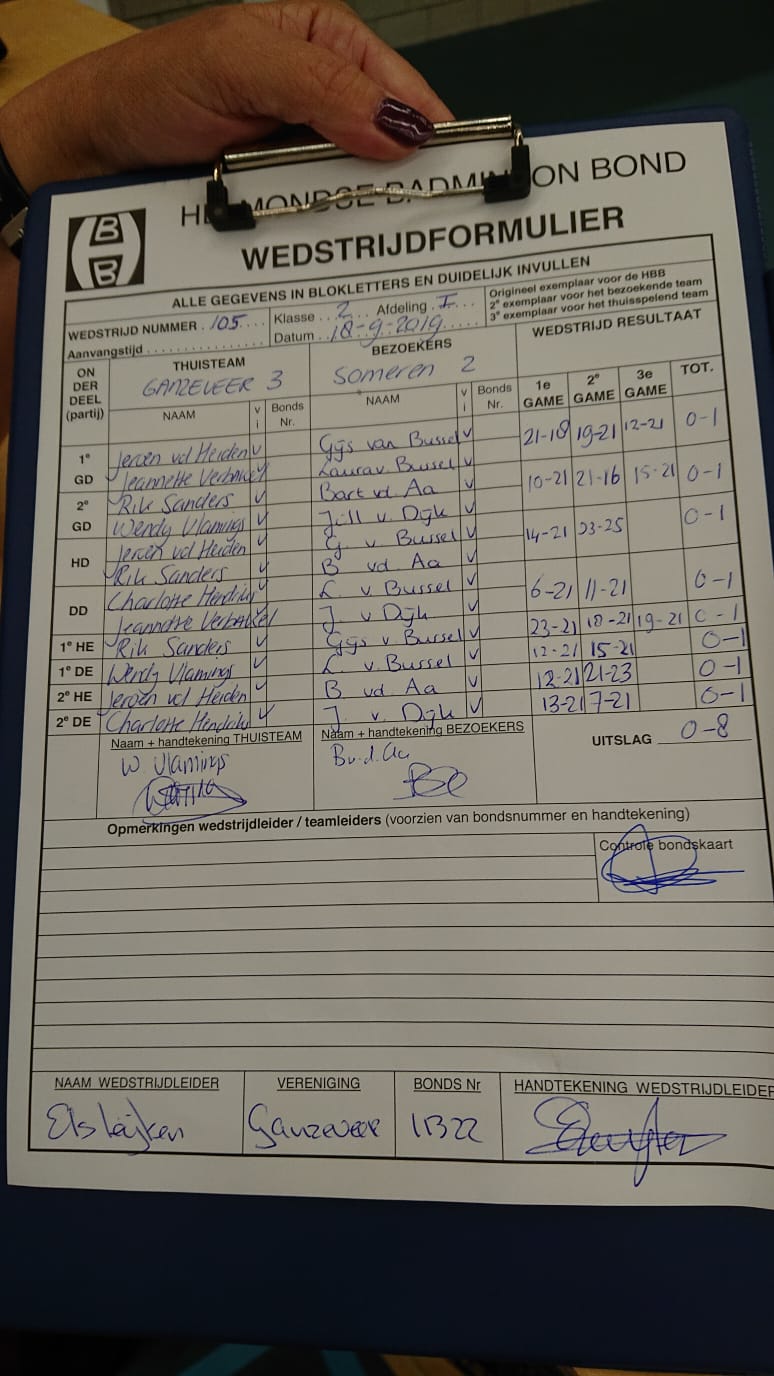 HELMONDSE BADMINTON BOND
WEDSTRIJDFORMULIER
ALLE GEGEVENS IN BLOKLETTERS EN DUIDELIJK INVULLEN
WEDSTRIJD NUMMER . 105 .... Klasse ... 2 ... Afdeling . I ...
Aanvangstijd ............... Datum .. 18-9-2019 ......
Origineel exemplaar voor de HBB
2e exemplaar voor het bezoekende team
3e exemplaar voor het thuisspelend team
ON DER DEEL (partij) THUISTEAM BEZOEKERS WEDSTRIJD RESULTAAT
GANZEVEER 3 Someren 2
NAAM v i Bonds Nr. NAAM v i Bonds Nr. 1e GAME 2e GAME 3e GAME TOT.
1e GD Jeroen vd Heiden v Gijs van Bussel v 21-18 19-21 12-21 0-1
Jeannette Verbakel v Laura v Bussel v
2e GD Rik Sanders v Bart vd Aa v 10-21 21-16 15-21 0-1
Wendy Vlamings v Jill v Dijk v
HD Jeroen vd Heiden v G v Bussel v 14-21 23-25 0-1
Rik Sanders v B vd Aa v
DD Charlotte v L v Bussel v 6-21 11-21 0-1
Jeannette Verbakel v J v Dijk v
1e HE Rik Sanders v Gijs v Bussel v 23-21 18-21 19-21 0-1
1e DE Wendy Vlamings v L v Bussel v 12-21 15-21 0-1
2e HE Jeroen vd Heiden v B vd Aa v 21-23 0-1
2e DE Charlotte v J v Dijk v 13-21 7-21 0-1
Naam + handtekening THUISTEAM Naam + handtekening BEZOEKERS UITSLAG 0-8
W. Vlamings B v.d. Aa
Opmerkingen wedstrijdleider / teamleiders (voorzien van bondsnummer en handtekening)
Controle bondskaart
NAAM WEDSTRIJDLEIDER VERENIGING BONDS Nr HANDTEKENING WEDSTRIJDLEIDER
Els Ganzeveer 11322